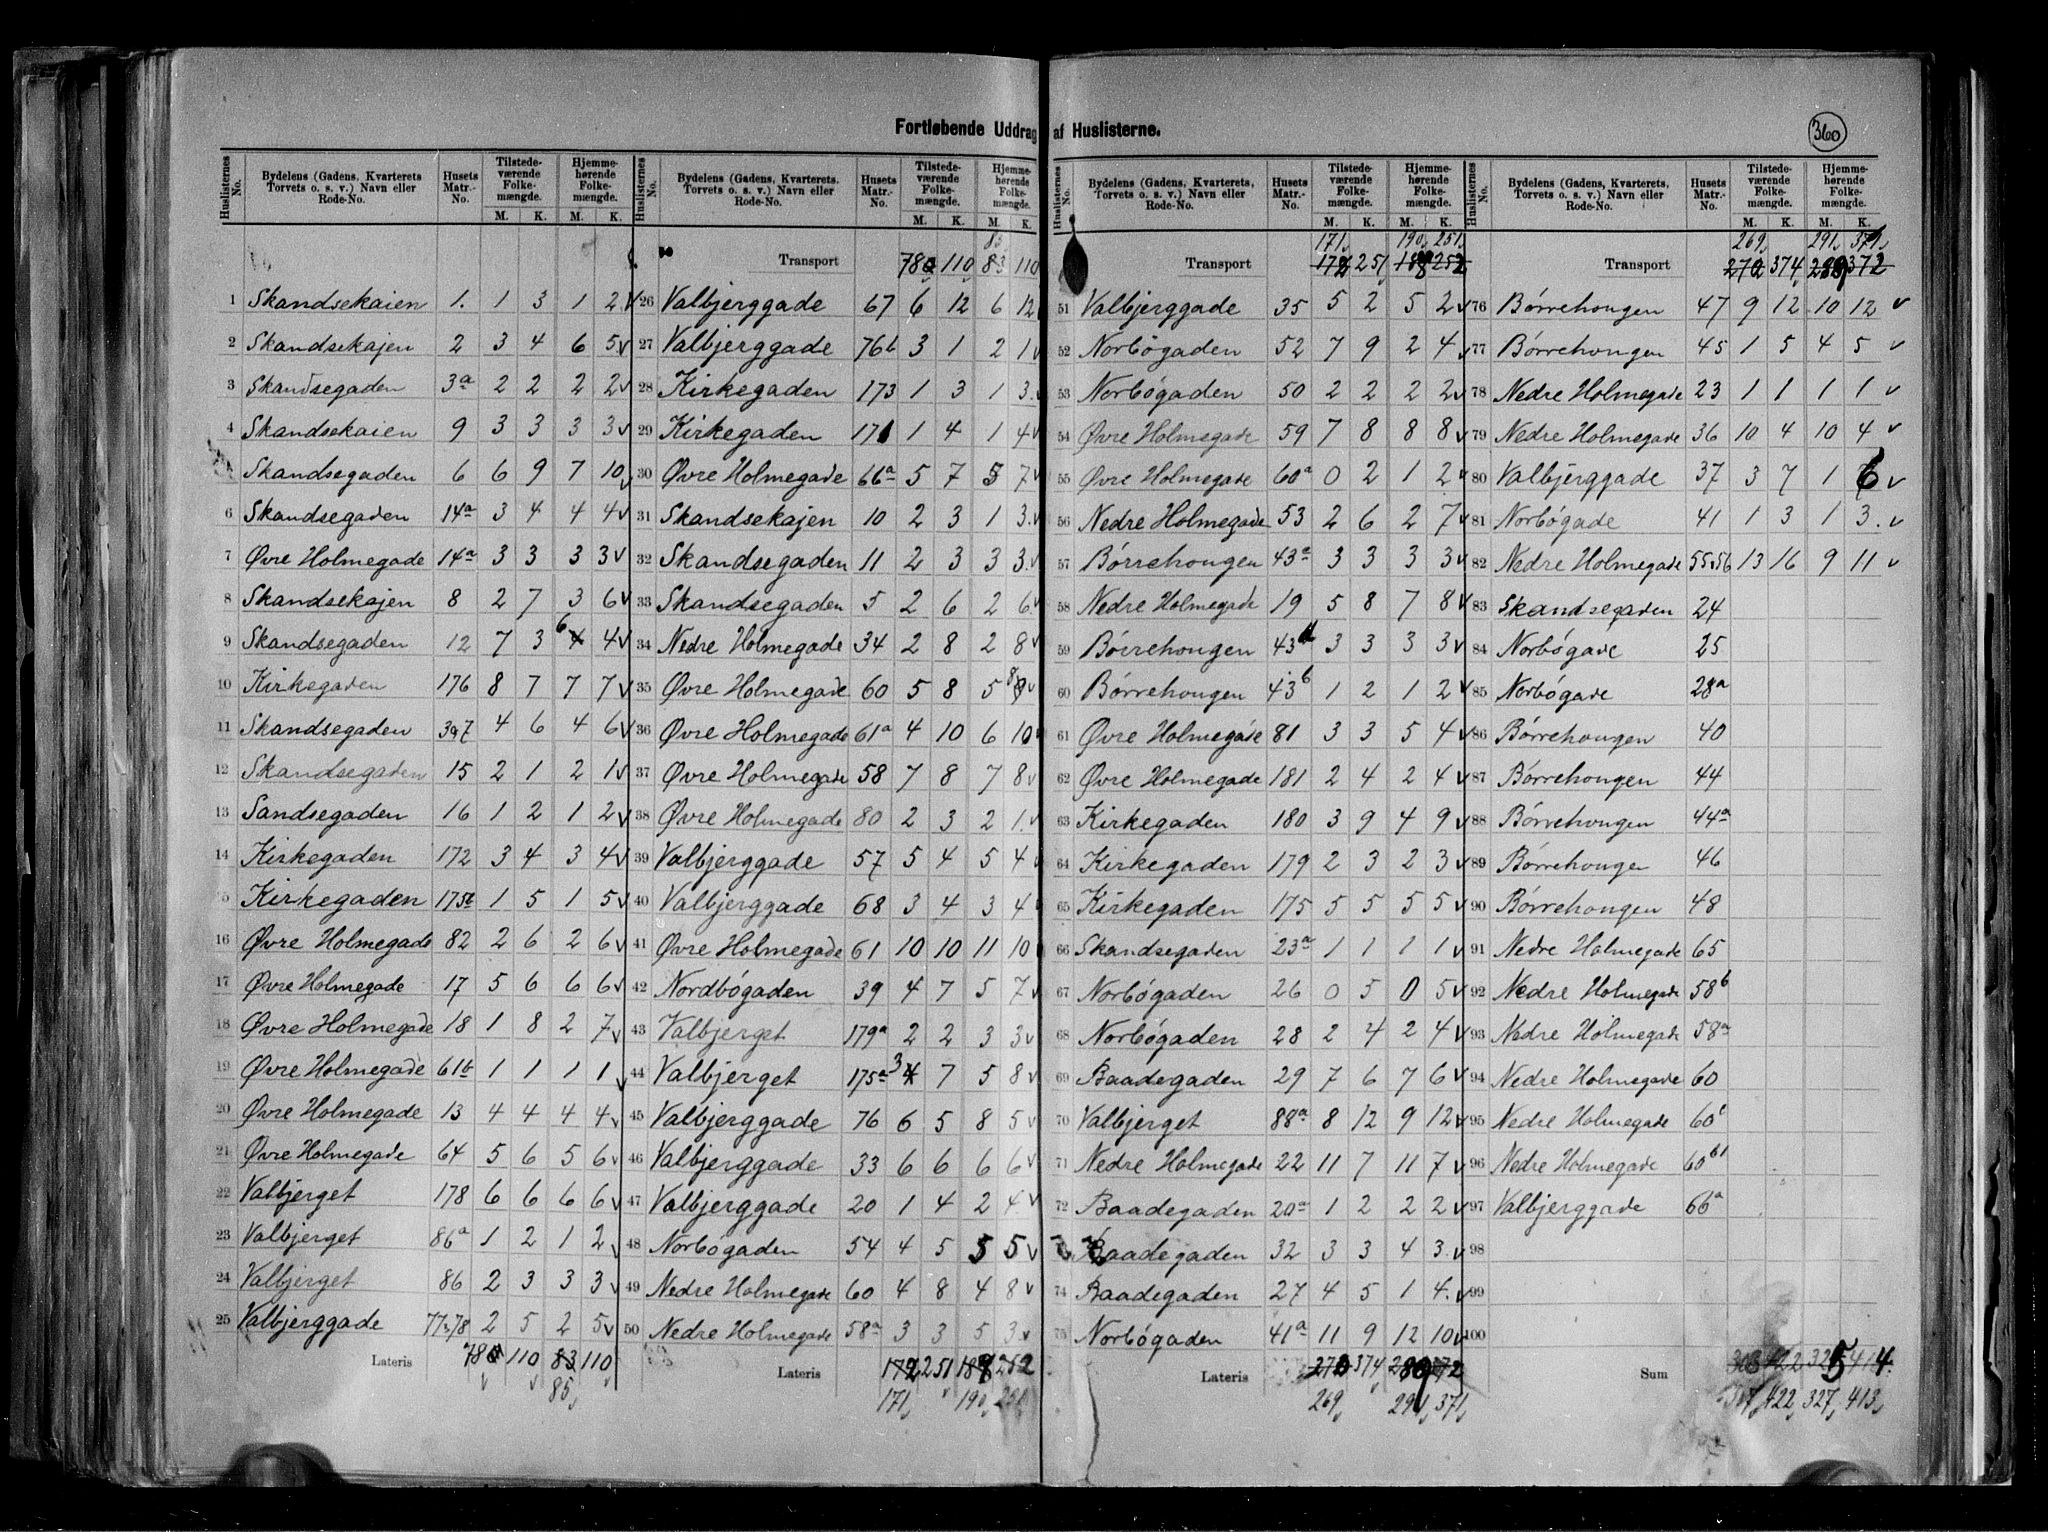 Fortløbende Uddrag af Huslisterne.
360
Huslisternes No. | Bydelens (Gadens, Kvarterets, Torvets o. s. v.) Navn eller Rode-No. | Husets Matr.-No. | Tilstedeværende Folkemængde. M. K. | Hjemmehørende Folkemængde. M. K.
1 Skandsekaien 1. 1 3 1 2 v
2 Skandsekajen 2 3 4 6 5 v
3 Skandsegaden 3a 2 2 2 2 v
4 Skandsekaien 9 3 3 3 3 v
Skandsegaden 6 6 9 7 10 v
6 Skandsegaden 14a 3 4 4 4 v
7 Øvre Holmegade 14a 3 3 3 3 v
8 Skandsekajen 8 2 7 3 6 v
9 Skandsegaden 12 7 3 6 4 v
10 Kirkegaden 176 8 7 7 7 v
11 Skandsegaden 3 og 7 4 6 4 6 v
12 Skandsegaden 15 2 1 2 1 v
13 Sandsegaden 16 1 2 1 2 v
14 Kirkegaden 172 3 4 3 4 v
5 Kirkegaden 175b 1 5 1 5 v
16 Øvre Holmegade 82 2 6 2 6 v
17 Øvre Holmegade 17 5 6 6 6 v
18 Øvre Holmegade 18 1 8 2 7 v
19 Øvre Holmegade 61b 1 1 1 1 v
20 Øvre Holmegade 13 4 4 4 4 v
21 Øvre Holmegade 64 5 6 5 6 v
22 Valbjerget 178 6 6 6 6 v
23 Valbjerget 86a 1 2 1 2 v
24 Valbjerget 86 2 3 3 3 v
25 Valbjerggade 77 & 78 2 5 2 5 v
Lateris 78 110 83 110
85
Huslisternes No. | Bydelens (Gadens, Kvarterets, Torvets o. s. v.) Navn eller Rode-No. | Husets Matr.-No. | Tilstedeværende Folkemængde. M. K. | Hjemmehørende Folkemængde. M. K.
Transport 78 110 83 110
26 Valbjerggade 67 6 12 6 12
27 Valbjerggade 76b 3 1 2 1 v
28 Kirkegaden 173 1 3 1 3. v
29 Kirkegaden 171 1 4 1 4 v
30 Øvre Holmegade 66a 5 7 5 7 v
31 Skandsekajen 10 2 3 1 3. v
32 Skandsegaden 11 2 3 3 3. v
33 Skandsegaden 5 2 6 2 6. v
34 Nedre Holmegade 34 2 8 2 8 v
35 Øvre Holmegade 60 5 8 5 8 v
36 Øvre Holmegade 61a 4 10 6 10 v
37 Øvre Holmegade 58 7 8 7 8 v
38 Øvre Holmegade 80 2 3 2 1. v
39 Valbjerggade 57 5 4 5 4
40 Valbjerggade 68 3 4 3 4
41 Øvre Holmegade 61 10 10 11 10
42 Nordbögaden 39 4 7 5 7 v
43 Valbjerget 179a 2 2 3 3 v
44 Valbjerget 175a 3 7 5 8 v
45 Valbjerggade 76 6 5 8 5 v
46 Valbjerggade 33 6 6 6 6 v
47 Valbjerggade 20 1 4 2 4 v
48 Norbögaden 54 4 5 5 5 v
49 Nedre Holmegade 60 4 8 4 8 v
50 Nedre Holmegade 58a 3 3 5 3 v
Lateris 172 251 252
171 190
Huslisternes No. | Bydelens (Gadens, Kvarterets, Torvets o. s. v.) Navn eller Rode-No. | Husets Matr.-No. | Tilstedeværende Folkemængde. M. K. | Hjemmehørende Folkemængde. M. K.
171 190 251
Transport 172 251 252
51 Valbjerggade 35 5 2 5 2 v
52 Norbögaden 52 7 9 2 4 v
53 Norbögaden 50 2 2 2 2 v
54 Øvre Holmegade 59 7 8 8 8 v
55 Øvre Holmegade 60a 0 2 1 2 v
56 Nedre Holmegade 53 2 6 2 7 v
57 Börrehougen 43a 3 3 3 3 v
58 Nedre Holmegade 19 5 8 7 8 v
59 Börrehougen 43d 3 3 3 3 v
60 Börrehougen 43b 1 2 1 2 v
61 Øvre Holmegade 81 3 3 5 4 v
62 Øvre Holmegade 181 2 4 2 4 v
63 Kirkegaden 180 3 9 4 9 v
64 Kirkegaden 179 2 3 2 3 v
65 Kirkegaden 175 5 5 5 5 v
66 Skandsegaden 23a 1 1 1 1 v
67 Norbögaden 26 0 5 0 5 v
68 Norbögaden 28 2 4 2 4 v
69 Baadegaden 29 7 6 7 6 v
70 Valbjerget 88a 8 12 9 12 v
71 Nedre Holmegade 22 11 7 11 7 v
72 Baadegaden 20a 1 2 2 2 v
Baadegaden 32 3 3 4 3. v
74 Baadegaden 27 4 5 1 4. v
75 Norbögaden 41a 11 9 12 10 v
Lateris 270 374 289 372
269 291 371
Huslisternes No. | Bydelens (Gadens, Kvarterets, Torvets o. s. v.) Navn eller Rode-No. | Husets Matr.-No. | Tilstedeværende Folkemængde. M. K. | Hjemmehørende Folkemængde. M. K.
269 291 371
Transport 270 374 289 372
76 Börrehougen 47 9 12 10 12 v
77 Börrehougen 45 1 5 4 5 v
78 Nedre Holmegade 23 1 1 1 1 v
79 Nedre Holmegade 36 10 4 10 4 v
80 Valbjerggade 37 3 7 1 6 v
81 Norbögade 41 1 3 1 3. v
82 Nedre Holmegade 55 & 56 13 16 9 11 v
83 Skandsegaden 24
84 Norbögade 25
85 Norbögade 28a
86 Börrehougen 40
87 Börrehougen 44
88 Börrehougen 44a
89 Börrehougen 46
90 Börrehougen 48
91 Nedre Holmegade 65
92 Nedre Holmegade 58b
93 Nedre Holmegade 58a
94 Nedre Holmegade 60
95 Nedre Holmegade 60b
96 Nedre Holmegade 60b1
97 Valbjerggade 66a
98
99
100
Sum 308 422 325 414
307 422 327 413